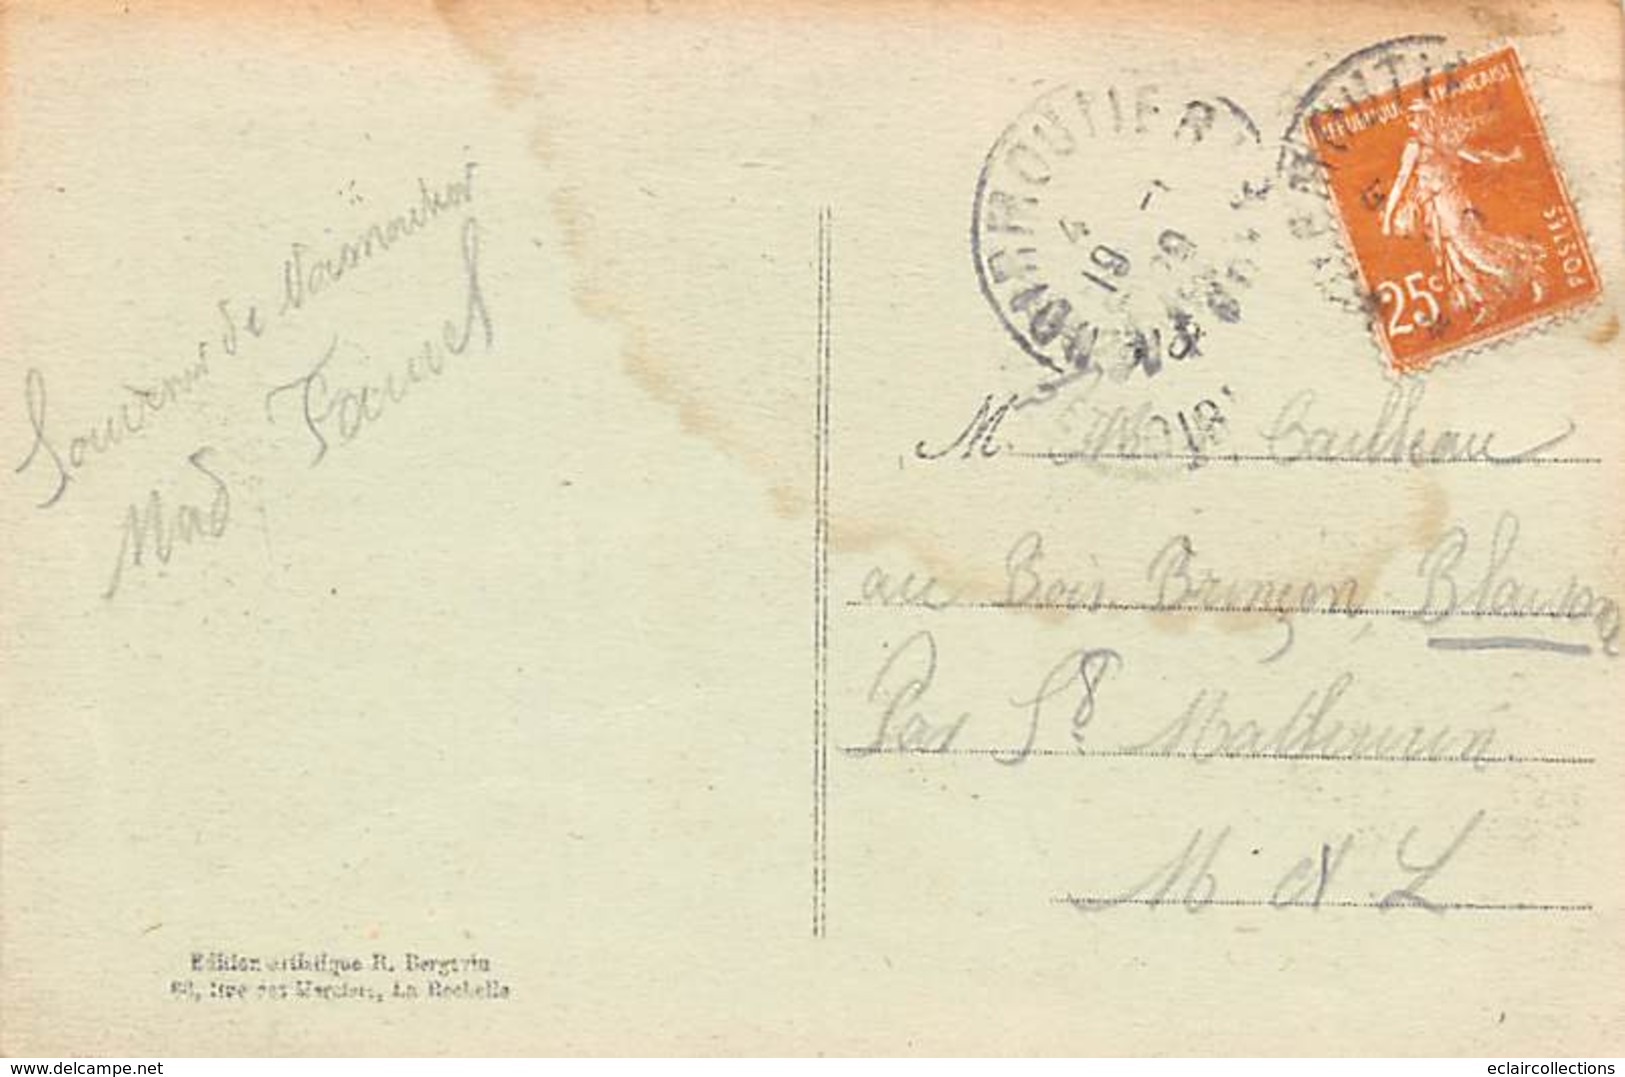 Souvenir de Noirmoutier
Mad Fannel
NOIRMOUTIER
RÉPUBLIQUE FRANÇAISE
POSTES
25c
M. Cailleau
au Bois Brinçon, Blaison
Par St Mathurin
M et L
Edition artistique R. Bergevin
88, Rue des Merciers, La Rochelle
www.delcampe.net
eclaircollections